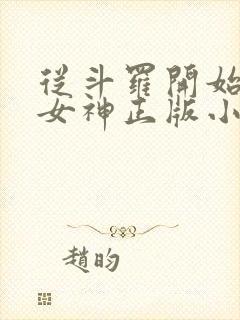 從斗羅開始
女神正版小
趙昀